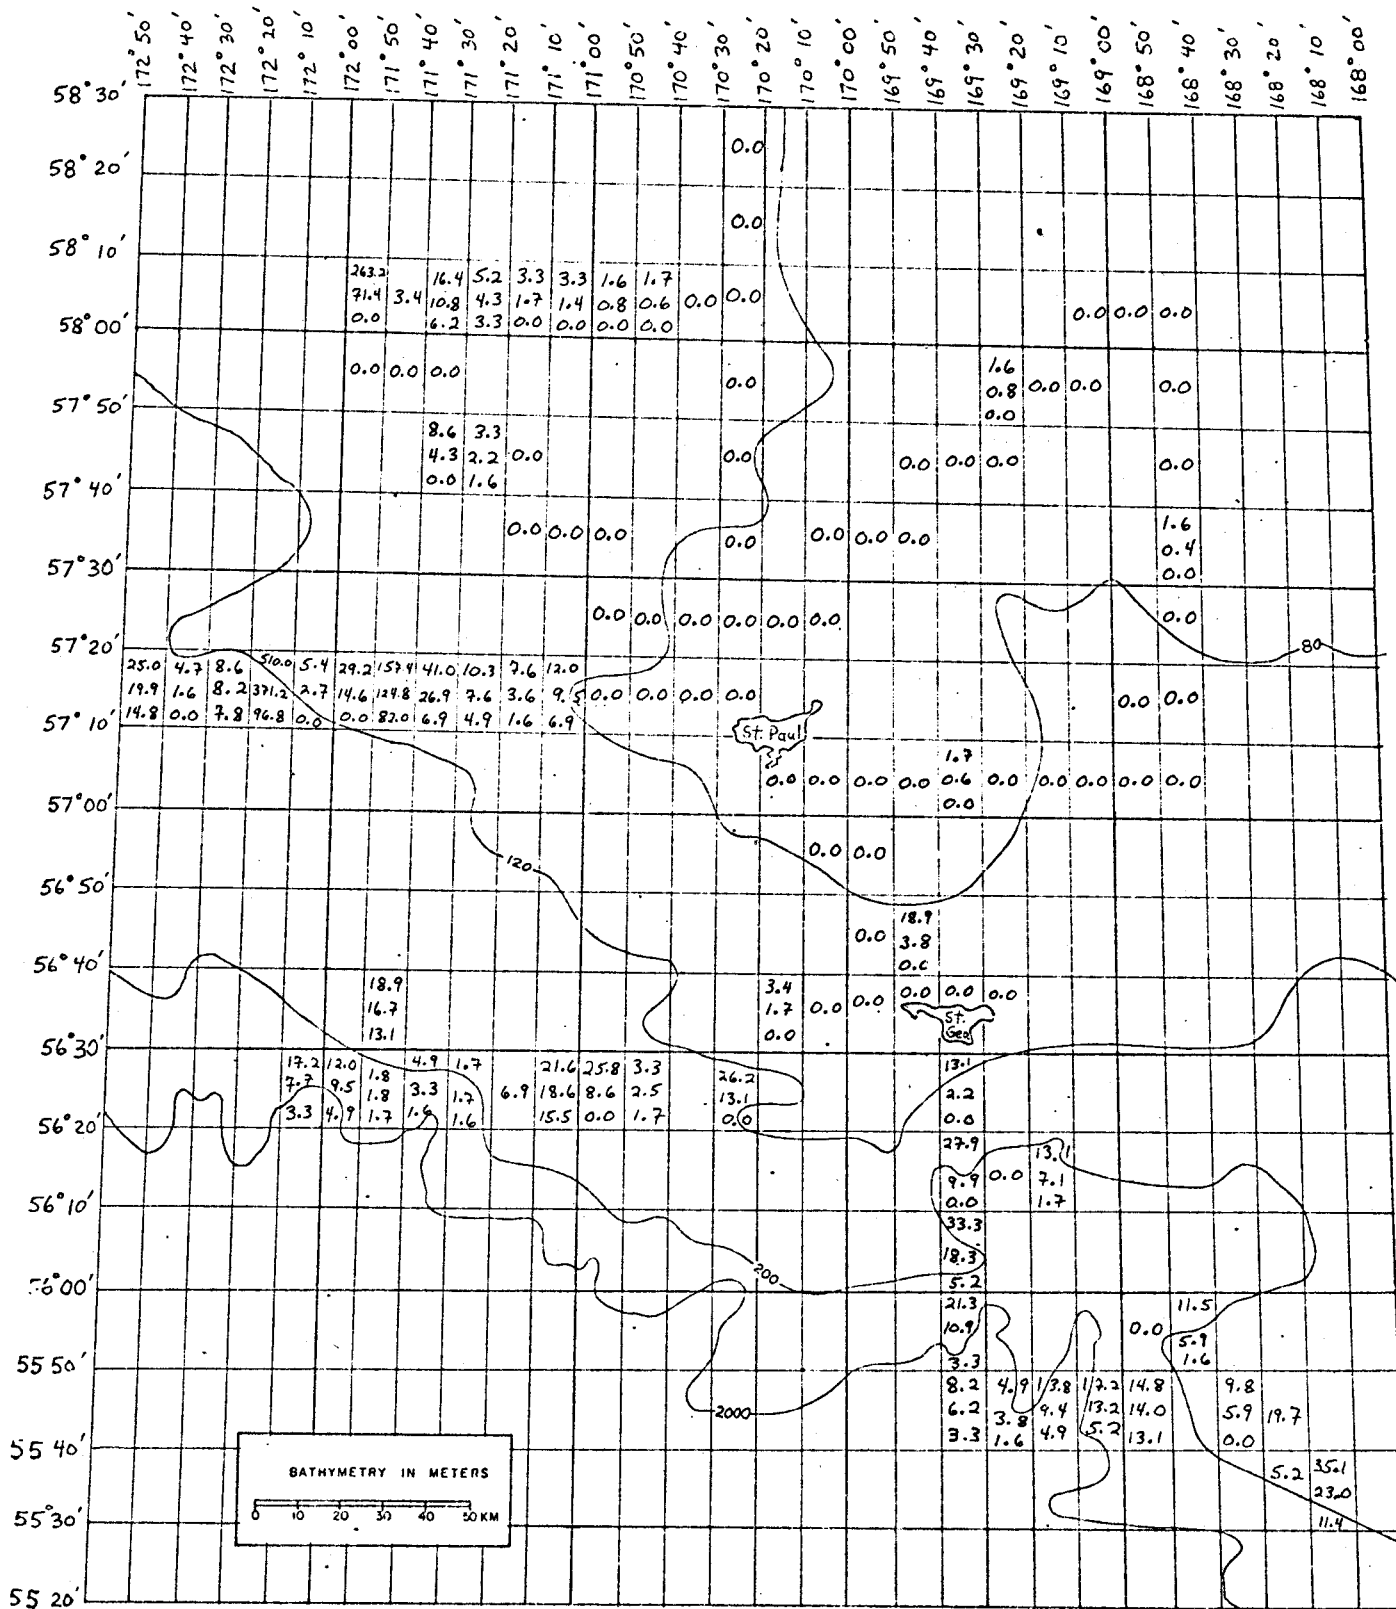 172° 50' 172° 40' 172° 30' 172° 20' 172° 10' 172° 00' 171° 50' 171° 40' 171° 30' 171° 20' 171° 10' 171° 00' 170° 50' 170° 40' 170° 30' 170° 20' 170° 10' 170° 00' 169° 50' 169° 40' 169° 30' 169° 20' 169° 10' 169° 00' 168° 50' 168° 40' 168° 30' 168° 20' 168° 10' 168° 00'
58° 30'
0.0
58° 20'
0.0
58° 10'
263.2 16.4 5.2 3.3 3.3 1.6 1.7
71.4 3.4 10.8 4.3 1.7 1.4 0.8 0.6 0.0 0.0
0.0 6.2 3.3 0.0 0.0 0.0 0.0
0.0 0.0 0.0
58° 00'
0.0 0.0 0.0 0.0
1.6
0.8 0.0 0.0 0.0
0.0
57° 50'
8.6 3.3
4.3 2.2 0.0 0.0 0.0 0.0 0.0 0.0
0.0 1.6
57° 40'
0.0 0.0 0.0 0.0 0.0 0.0 0.0
1.6
0.4
0.0
57° 30'
0.0 0.0 0.0 0.0 0.0 0.0 0.0
57° 20'
80
25.0 4.7 8.6 510.0 5.4 29.2 157.4 41.0 10.3 7.6 12.0
19.9 1.6 8.2 371.2 2.7 14.6 124.8 26.9 7.6 3.6 9.5 0.0 0.0 0.0 0.0 0.0 0.0
14.8 0.0 7.8 96.8 0.0 0.0 82.0 6.9 4.9 1.6 6.9
57° 10'
St. Paul
1.7
0.0 0.0 0.0 0.0 0.6 0.0 0.0 0.0 0.0 0.0
0.0
57° 00'
0.0 0.0
120
56° 50'
18.9
0.0 3.8
0.0
56° 40'
18.9 3.4 0.0 0.0 0.0
16.7 1.7 0.0 0.0
13.1 0.0
St.
Geo.
56° 30'
17.2 12.0 1.8 4.9 1.7 21.6 25.8 3.3 26.2 13.1
7.7 9.5 1.8 3.3 1.7 6.9 18.6 8.6 2.5 13.1 2.2
3.3 4.9 1.7 1.6 1.6 15.5 0.0 1.7 0.0 0.0
56° 20'
27.9 13.1
9.9 0.0 7.1
0.0 1.7
56° 10'
33.3
18.3
5.2
200
56° 00'
21.3 11.5
10.9 0.0 5.9
3.3 1.6
55 50'
8.2 4.9 13.8 17.2 14.8 9.8
6.2 3.8 9.4 13.2 14.0 5.9 19.7
3.3 1.6 4.9 5.2 13.1 0.0
2000
55 40'
5.2 35.1
23.0
11.4
BATHYMETRY IN METERS
0 10 20 30 40 50 KM
55° 30'
55 20'